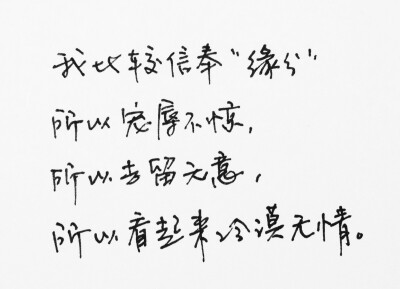 我比较信奉“缘分”
所以宠辱不惊，
所以去留无意，
所以看起来冷漠无情。